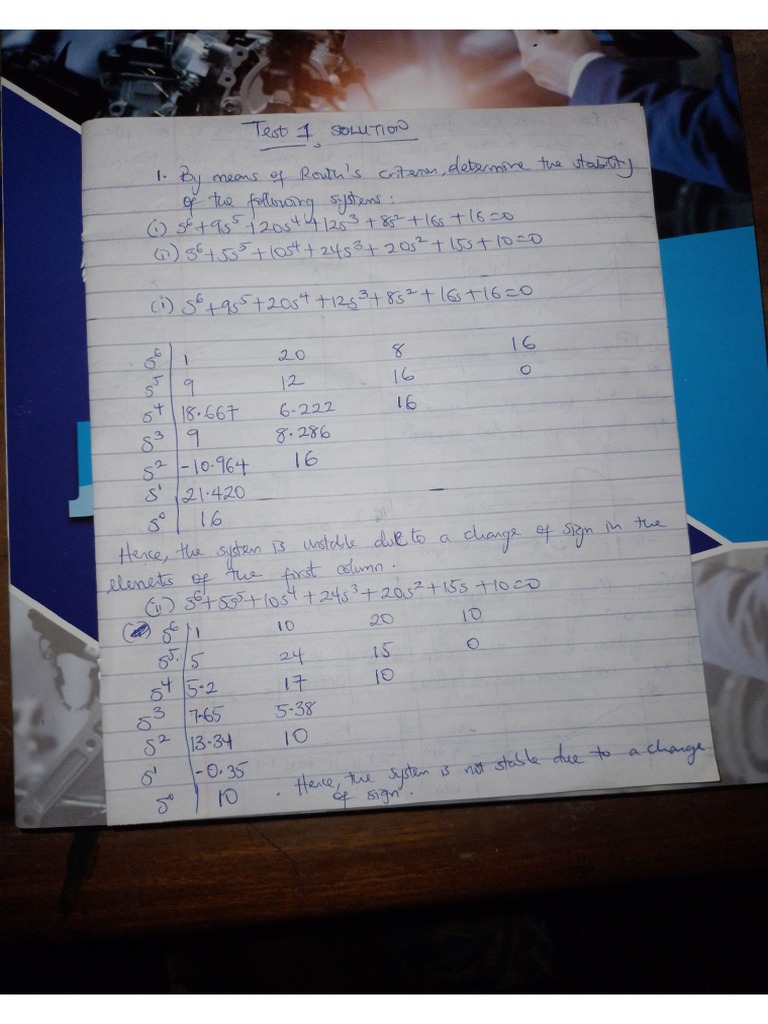 Test 1 SOLUTION
1. By means of Routh's criterion, determine the stability
of the following systems:
(i) s⁶+9s⁵+20s⁴+12s³+8s²+16s+16=0
(ii) s⁶+5s⁵+10s⁴+24s³+20s²+15s+10=0
(i) s⁶+9s⁵+20s⁴+12s³+8s²+16s+16=0
s⁶ | 1 20 8 16
s⁵ | 9 12 16 0
s⁴ | 18.667 6.222 16
s³ | 9 8.286
s² | -10.964 16
s¹ | 21.420
s⁰ | 16
Hence, the system is unstable due to a change of sign in the
elements of the first column.
(ii) s⁶+5s⁵+10s⁴+24s³+20s²+15s+10=0
s⁶ | 1 10 20 10
s⁵ | 5 24 15 0
s⁴ | 5.2 17 10
s³ | 7.65 5.38
s² | 13.34 10
s¹ | -0.35
s⁰ | 10 . Hence, the system is not stable due to a change
of sign.